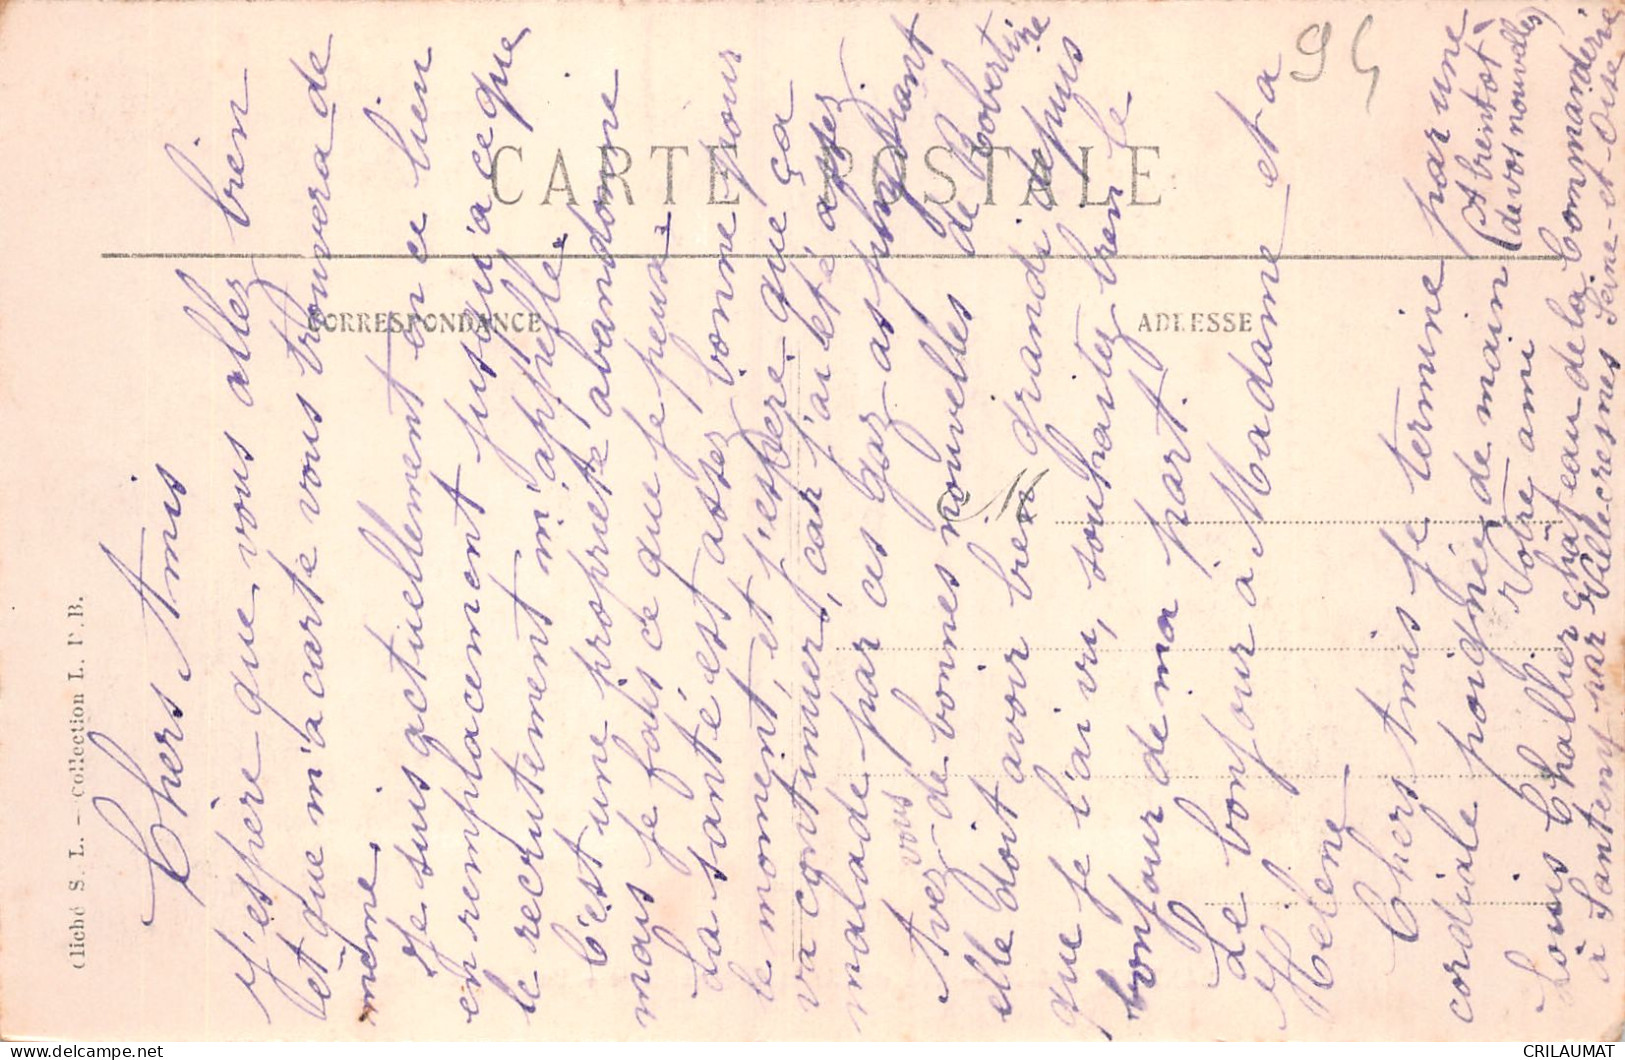 Chers Amis
J'espère que vous allez bien
et que m'a carte vous trouvera de
même.
Je suis actuellement en ce lieu
en remplacement jusqu'à ce que
le recrutement m'appelle.
C'est une propriété abandonné
mais je fais ce que je peux.
La santé est assez bonne pour
le moment, et j'espère que ça
va continuer, car j'ai été assez
malade par ces gaz asphyxiant
Avez-vous de bonnes nouvelles de Robertine
elle doit avoir bien grandi depuis
que je l'ai vu, souhaitez bien le
bonjour de ma part.
Le bonjour à Madame et a
Hélène
Chers Amis je termine par une
cordiale poignée de main
(A bientôt
de vos nouvelles)
Votre ami
Louis Challier château de la Commanderie
à Santeny par Villecresnes Seine-et-Oise
CARTE POSTALE
CORRESPONDANCE
ADRESSE
Cliché S. L. — Collection L. P. B.
94
CRILAUMAT